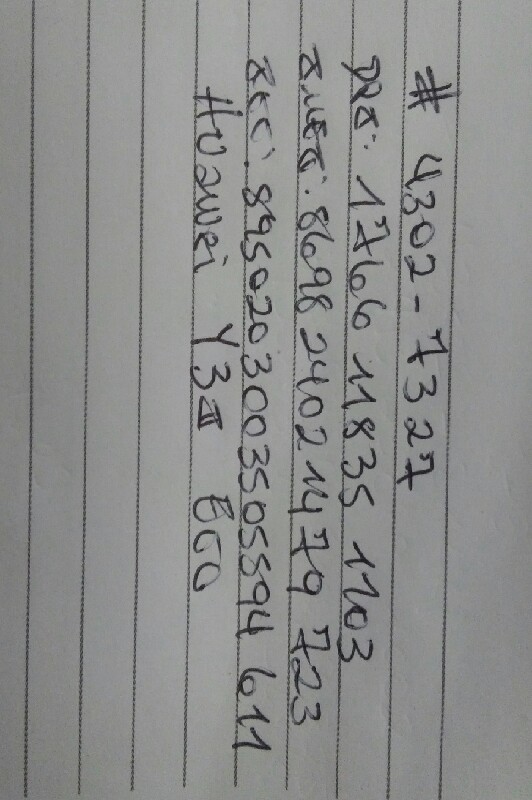 # 4302-7327
DPI: 1766 11835 1103
IMEI: 8698 2402 1479 723
ICC: 8950203003505594611
Huawei Y3II Eco